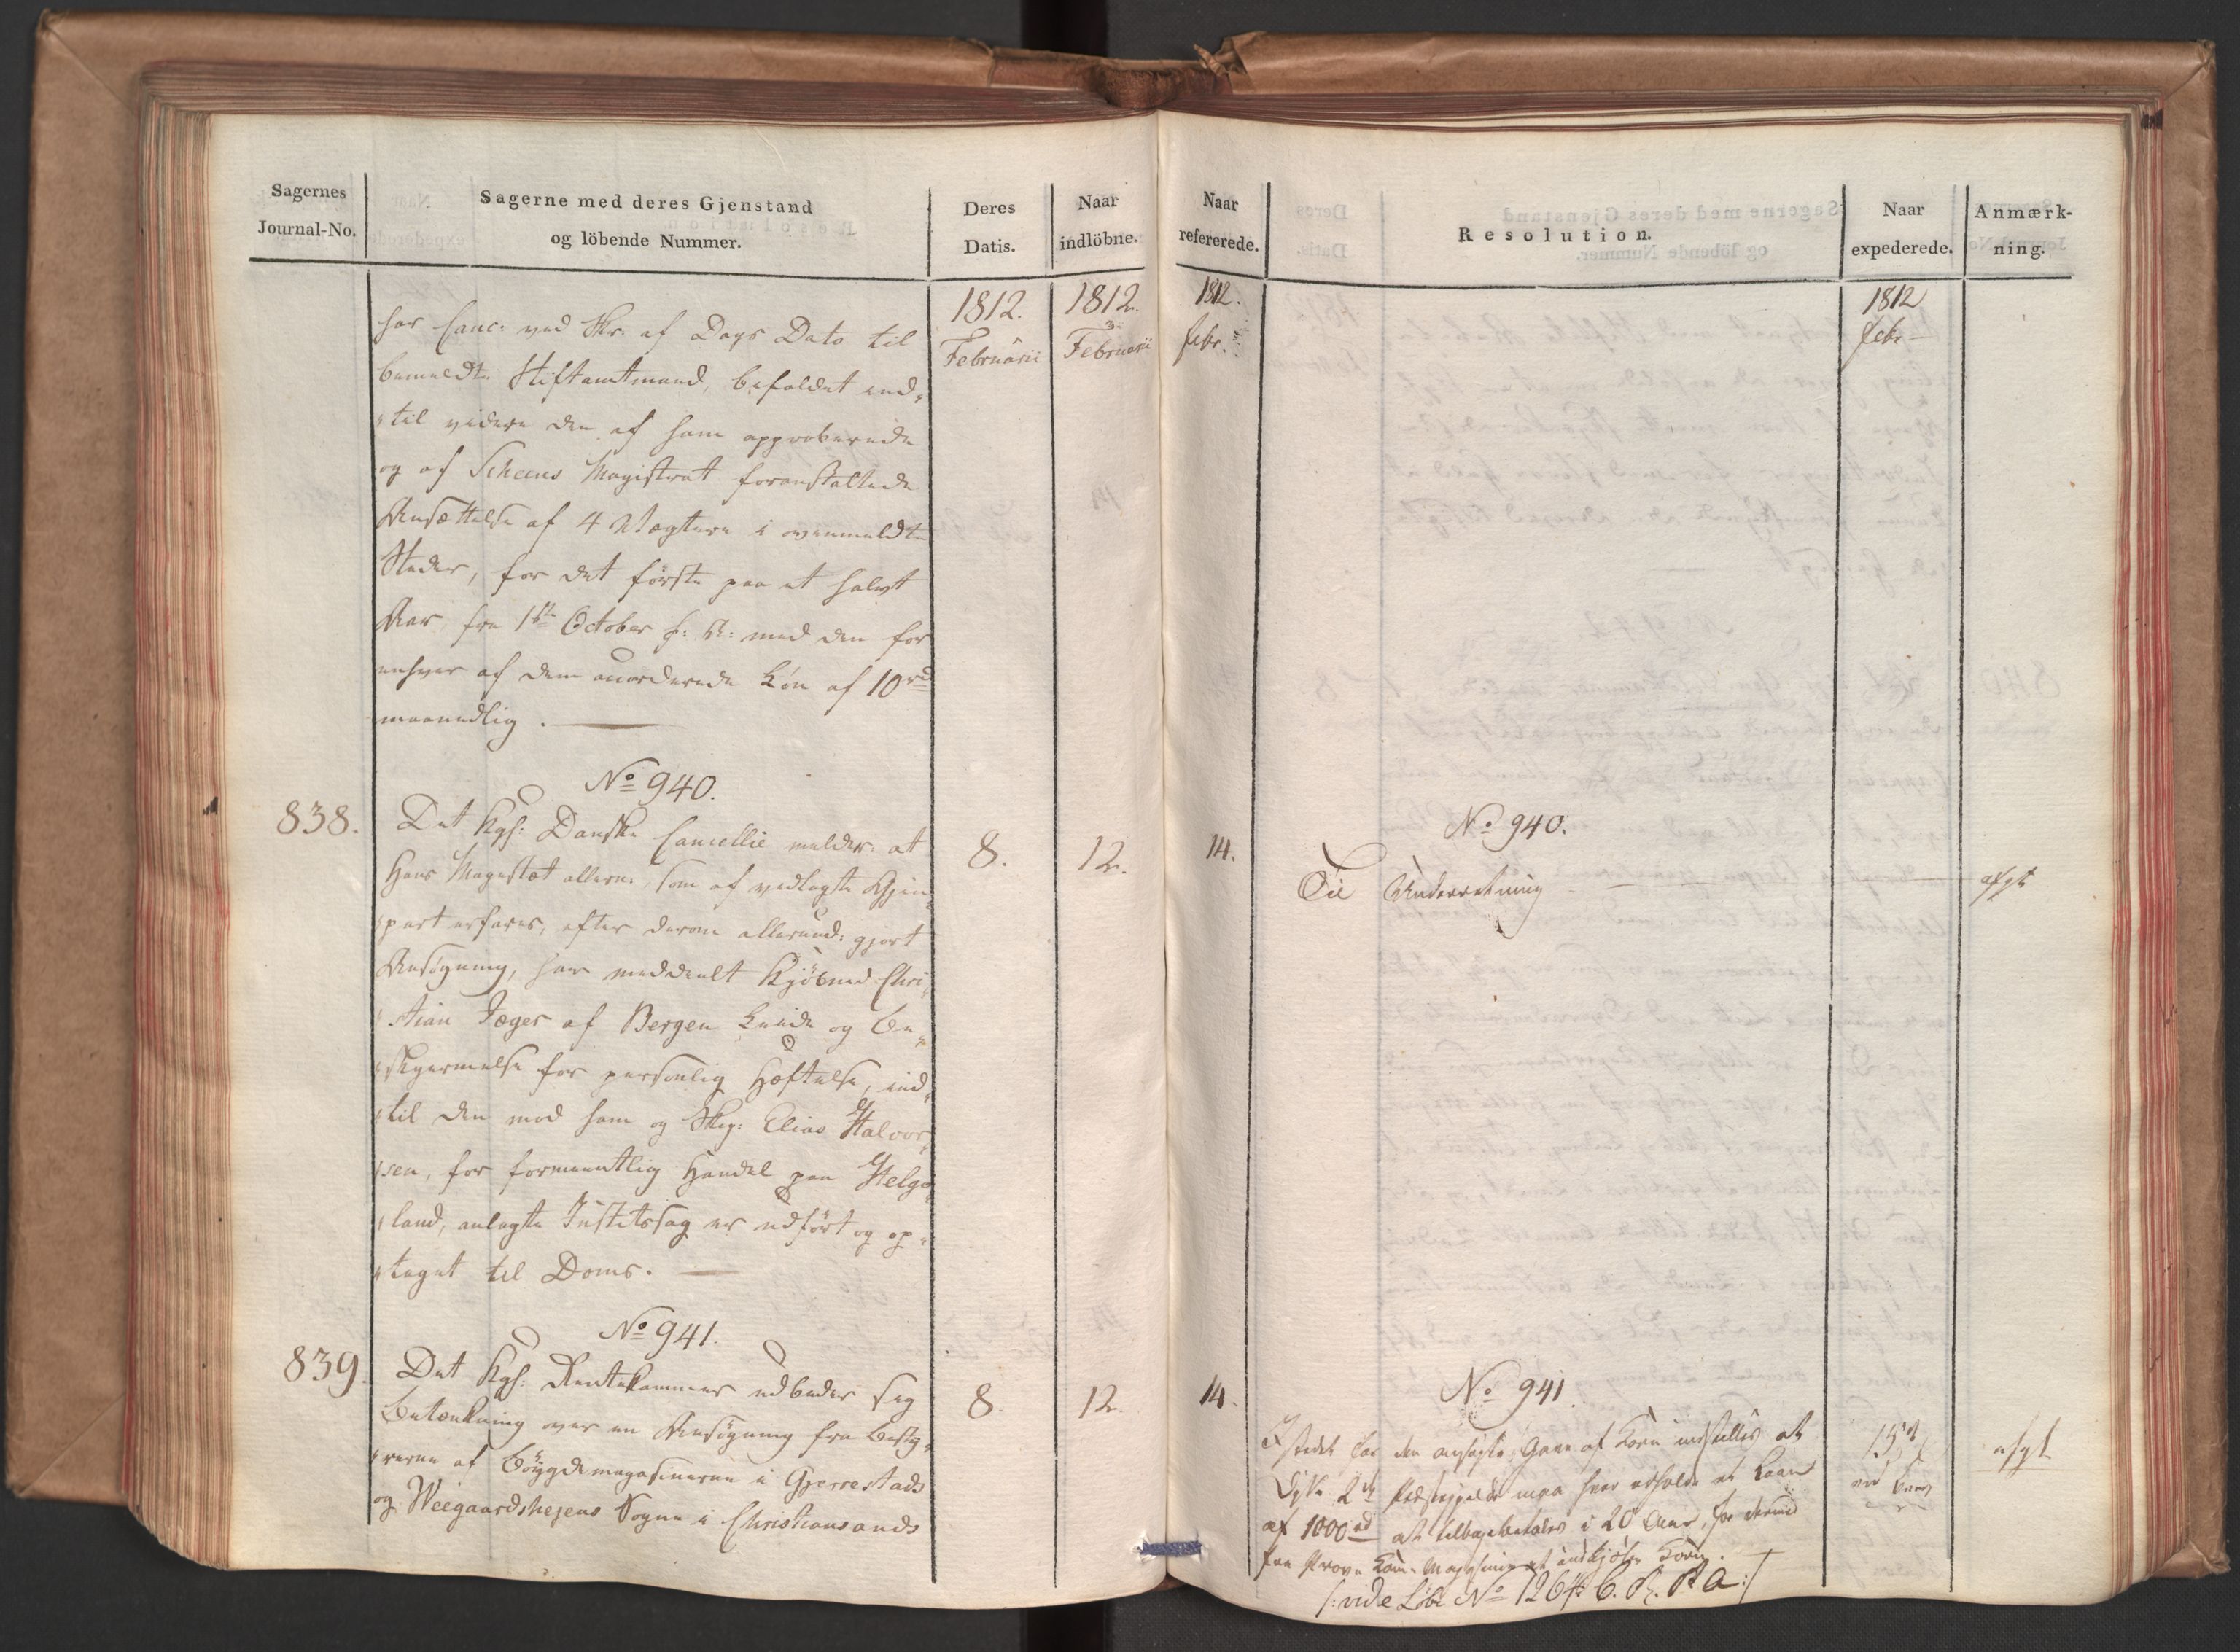 Sagernes
Journal-No.
Sagerne med deres Gjenstand
og löbende Nummer.
Deres
Datis.
Naar
indlöbne.
1812.
Februarii
1812.
Februarii
har Canc: ved Skr. af Dags Dato til
bemeldte Stiftamtmand, befaldet ind¬
til videre den af ham approberede
og af Scheens Magistrat foranstaltede
Ansættelse af 4 Vægtere i ovenmeldte
Steder, for det förste paa et halvt
Aar, fra 1ste October f: A: med den for
enhver af dem accorderede Lön af 10 rd
maanedlig.
No 940.
838.
Det Kgl: Danske Cancellie melder at
8.
12.
Hans Majestæt allern:, som af vedlagte Gjen¬
part erfares, efter derom allerund: gjort
Ansögning, har meddeelt Kjöbmd Chri¬
stian Jæger af Bergen Leide og Be¬
skjermelse for personlig Hæftelse, ind¬
til den mod ham og Skip: Elias Halvor¬
sen, for formeentlig Handel paa Helgo¬
land, anlagte Justitssag er udfört og op¬
taget til Doms.
No 941.
839.
Det Kgl: Rentekammer udbeder sig
8.
12.
Betænkning over en Ansögning fra Besty¬
rerne af Böygdemagasinerne i Gjerrestads
og Weegaardshejens Sogne i Christiansands
Naar
refererede.
Resolution.
Naar
expederede.
Anmærk-
ning.
1812.
Febr.
1812
Febr
No 940.
14.
Til Underretning
afgt
No 941.
14.
Istedet for den ansøgte Gave af Korn indstilles at
15de
afgt
af 1000 rd at tilbagebetales i 20 Aar, for derved
fra Prov: Korn-Magasinet at indkjøbe Korn.
/: vide Løbe No 1264